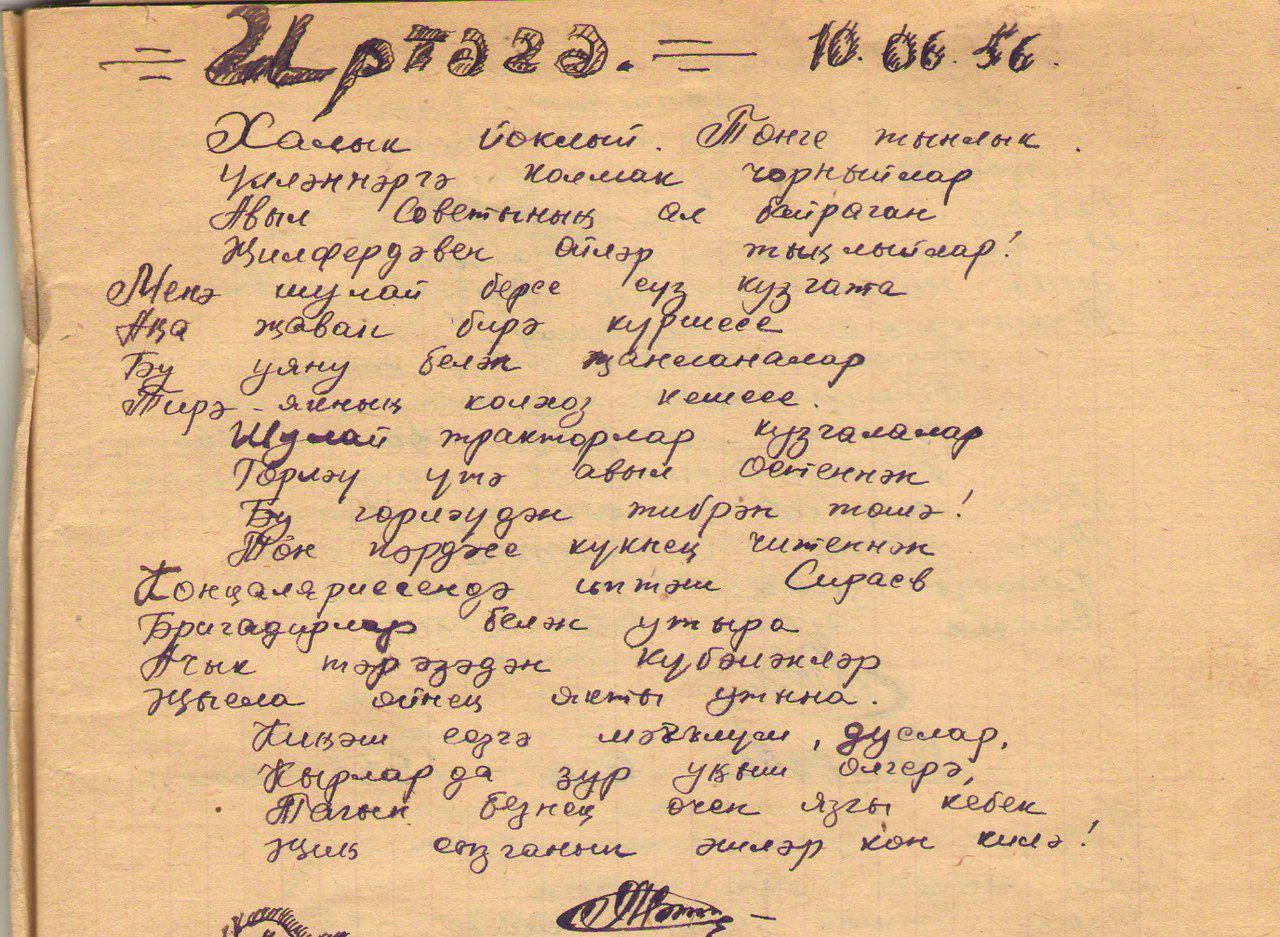 = Иртәгә. = 10.06.56.
Халык йоклый. Төнге тынлык.
Үләннәргә колмак чорныйлар
Авыл Советының ал байраган
Җилфердәвен өйләр тыңлыйлар!
Менә шулай берсе сүз кузгата
Аңа җавап бирә күршесе
Бу уяну белән җанланалар
Тирә-якның колхоз кешесе.
Шулай тракторлар кузгалалар
Гөрләү үтә авыл өстеннән
Бу гөрләүдән тибрәп төшә!
Төн пәрдәсе күкнең читеннән
Концаляриесендә иптәш Сираев
Бригадирлар белән утыра
Ачык тәрәзәдән күбәләкләр
Җыела өйнең якты утына.
Киңәш сезгә мәгълүм, дуслар,
Кырларда зур уңыш өлгерә,
Тагын безнең өчен язгы кебек
Җиң сызганып эшләр көн килә!